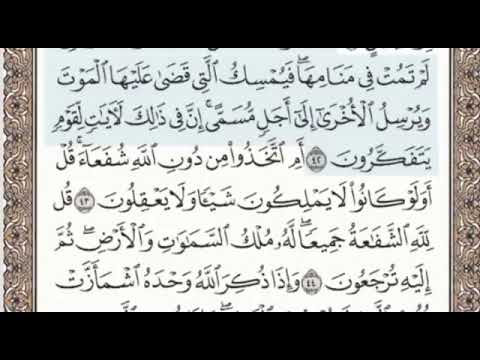 لَمْ تَمُتْ فِى مَنَامِهَا ۖ فَيُمْسِكُ ٱلَّتِى قَضَىٰ عَلَيْهَا ٱلْمَوْتَ
وَيُرْسِلُ ٱلْأُخْرَىٰٓ إِلَىٰٓ أَجَلٍ مُّسَمًّى ۚ إِنَّ فِى ذَٰلِكَ لَـَٔايَـٰتٍ لِّقَوْمٍ
يَتَفَكَّرُونَ ٤٢ أَمِ ٱتَّخَذُوا۟ مِن دُونِ ٱللَّهِ شُفَعَآءَ ۚ قُلْ
أَوَلَوْ كَانُوا۟ لَا يَمْلِكُونَ شَيْـًٔا وَلَا يَعْقِلُونَ ٤٣ قُل
لِّلَّهِ ٱلشَّفَـٰعَةُ جَمِيعًا ۖ لَّهُۥ مُلْكُ ٱلسَّمَـٰوَٰتِ وَٱلْأَرْضِ ۖ ثُمَّ
إِلَيْهِ تُرْجَعُونَ ٤٤ وَإِذَا ذُكِرَ ٱللَّهُ وَحْدَهُ ٱشْمَأَزَّتْ